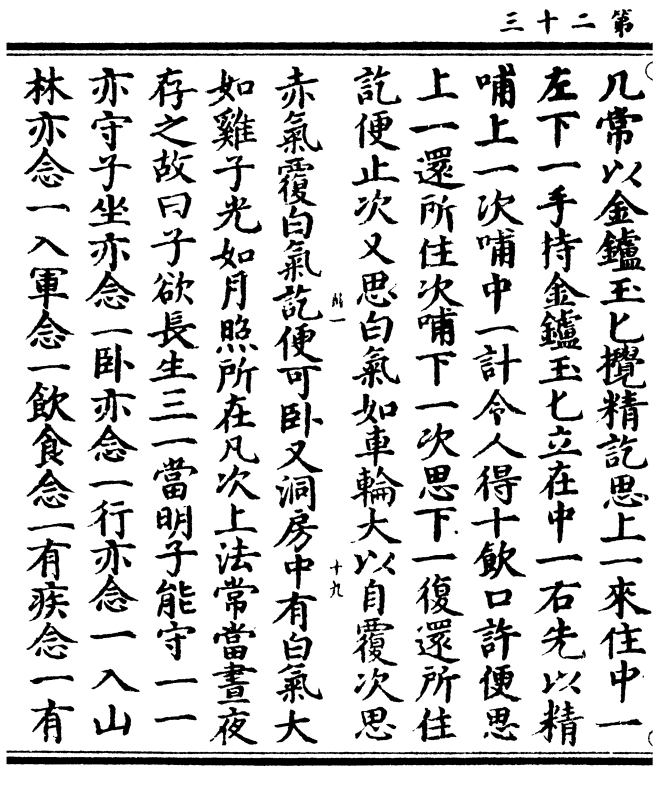 第二十三
几常以金鑪玉匕攪精訖思上一來住中一
左下一手持金鑪玉匕立在中一右先以精
哺上一次哺中一計令人得十飲口許便思
上一還所住次哺下一次思下一復還所住
訖便止次又思白氣如車輪大以自覆次思
十九
赤氣覆白氣訖便可卧又洞房中有白氣大
如雞子光如月照所在凡次上法常當晝夜
存之故曰子欲長生三一當明子能守一一
亦守子坐亦念一卧亦念一行亦念一入山
林亦念一入軍念一飲食念一有疾念一有